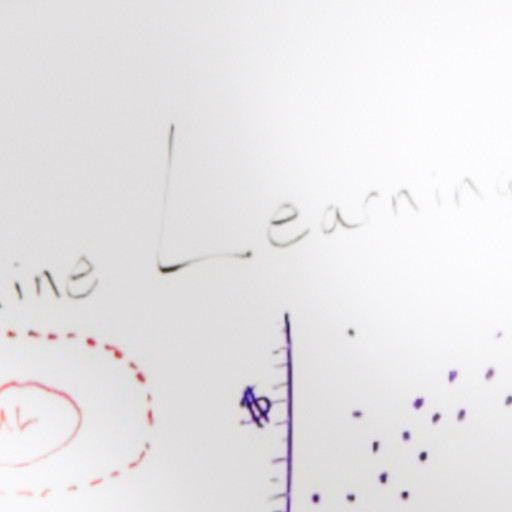 ine Learning
ML